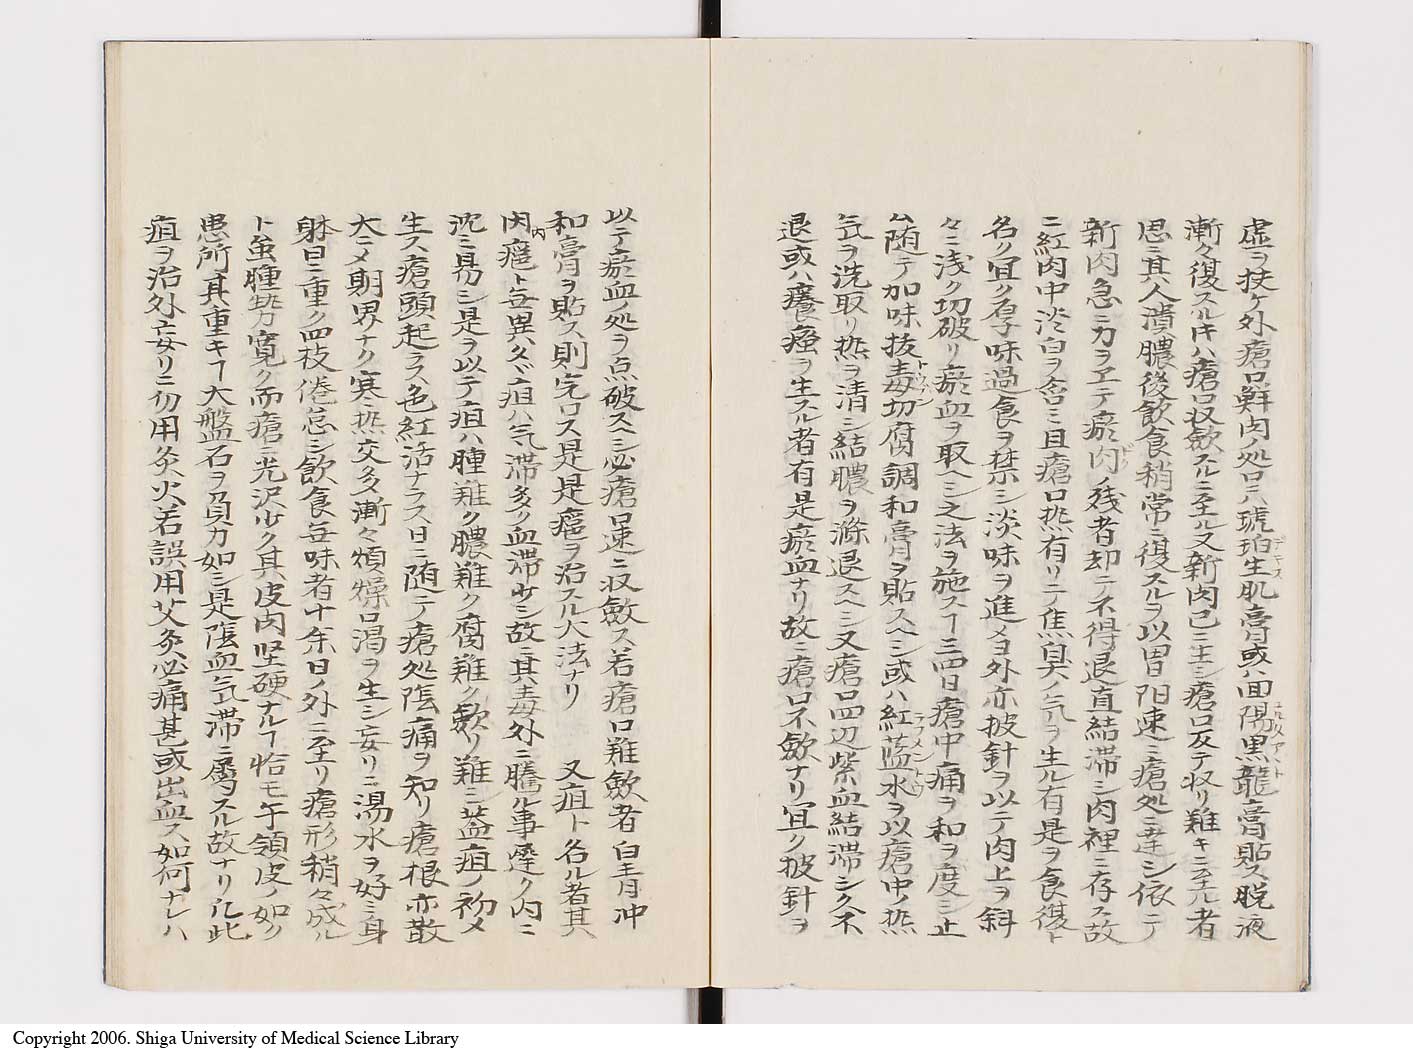 虚ヲ扶ケ外瘡口鮮肉ノ処ロハ琥珀生肌膏或ハ回陽黒龍膏貼ス脱液
漸々復スル𪜈ハ瘡口収斂スルニ至ル又新肉已ニ生シ瘡口反テ収リ難キニ至ル者
思ニ其人潰膿後飲食稍常ニ復スルヲ以胃陽速ニ瘡処ニ達シ依テ
新肉急ニ力ヲヱテ瘀肉ノ残者却テ不得退直結滞シ肉裡ニ存ス故
ニ紅肉中淡白ヲ含ミ且瘡口熱有リニテ焦臭ノ気ヲ生ル有是ヲ食復ト
名ク宜ク厚味過食ヲ禁シ淡味ヲ進メヨ外亦披針ヲ以テ肉上ヲ斜
々ニ浅ク切破リ瘀血ヲ取ヘシ之法ヲ施スヿ三四日瘡中痛ヲ和ヲ度シ止
ム随テ加味抜毒切腐調和膏ヲ貼スヘシ或ハ紅藍水ヲ以瘡中ノ熱
気ヲ洗取リ熱ヲ清シ結膿ヲ滌退スヘシ又瘡口四辺紫血結滞シ久不
退或ハ癢瘙ヲ生スル者有是瘀血ナリ故ニ瘡口不斂ナリ宜ク披針ヲ
以テ瘀血ノ処ヲ点破スヘシ必瘡口速ニ収斂ス若瘡口難斂者白青冲
和膏ヲ貼ス則完口ス是是癰ヲ治スル大法ナリ　又疽ト名ル者其
因内癰ト無異久ハ疽ハ気滞多ク血滞少シ故ニ其毒外ニ騰ル事遅ク内ニ
沈ミ易シ是ヲ以テ疽ハ腫難ク膿難ク腐難ク斂リ難シ蓋疽ノ初メ
生ス瘡頭起ラス色紅活ナラス日ニ随テ瘡処陰痛ヲ知リ瘡根亦散
大ニメ期界ナク寒熱交多漸々煩燥口渇ヲ生シ妄リニ湯水ヲ好ミ身
躰日ニ重ク四枝倦怠シ飲食無味者十余日ノ外ニ至リ瘡形稍々成ル
ト虽腫勢寛ク而瘡ニ光沢少ク其皮肉堅硬ナルヿ恰モ牛領皮ノ如ク
患所其重キヿ大盤石ヲ負カ如シ是陰血気滞ニ属スル故ナリ凡此
疽ヲ治外妄リニ勿用灸火若誤用艾灸必痛甚或出血ス如何ナレハ
Copyright 2006. Shiga University of Medical Science Library